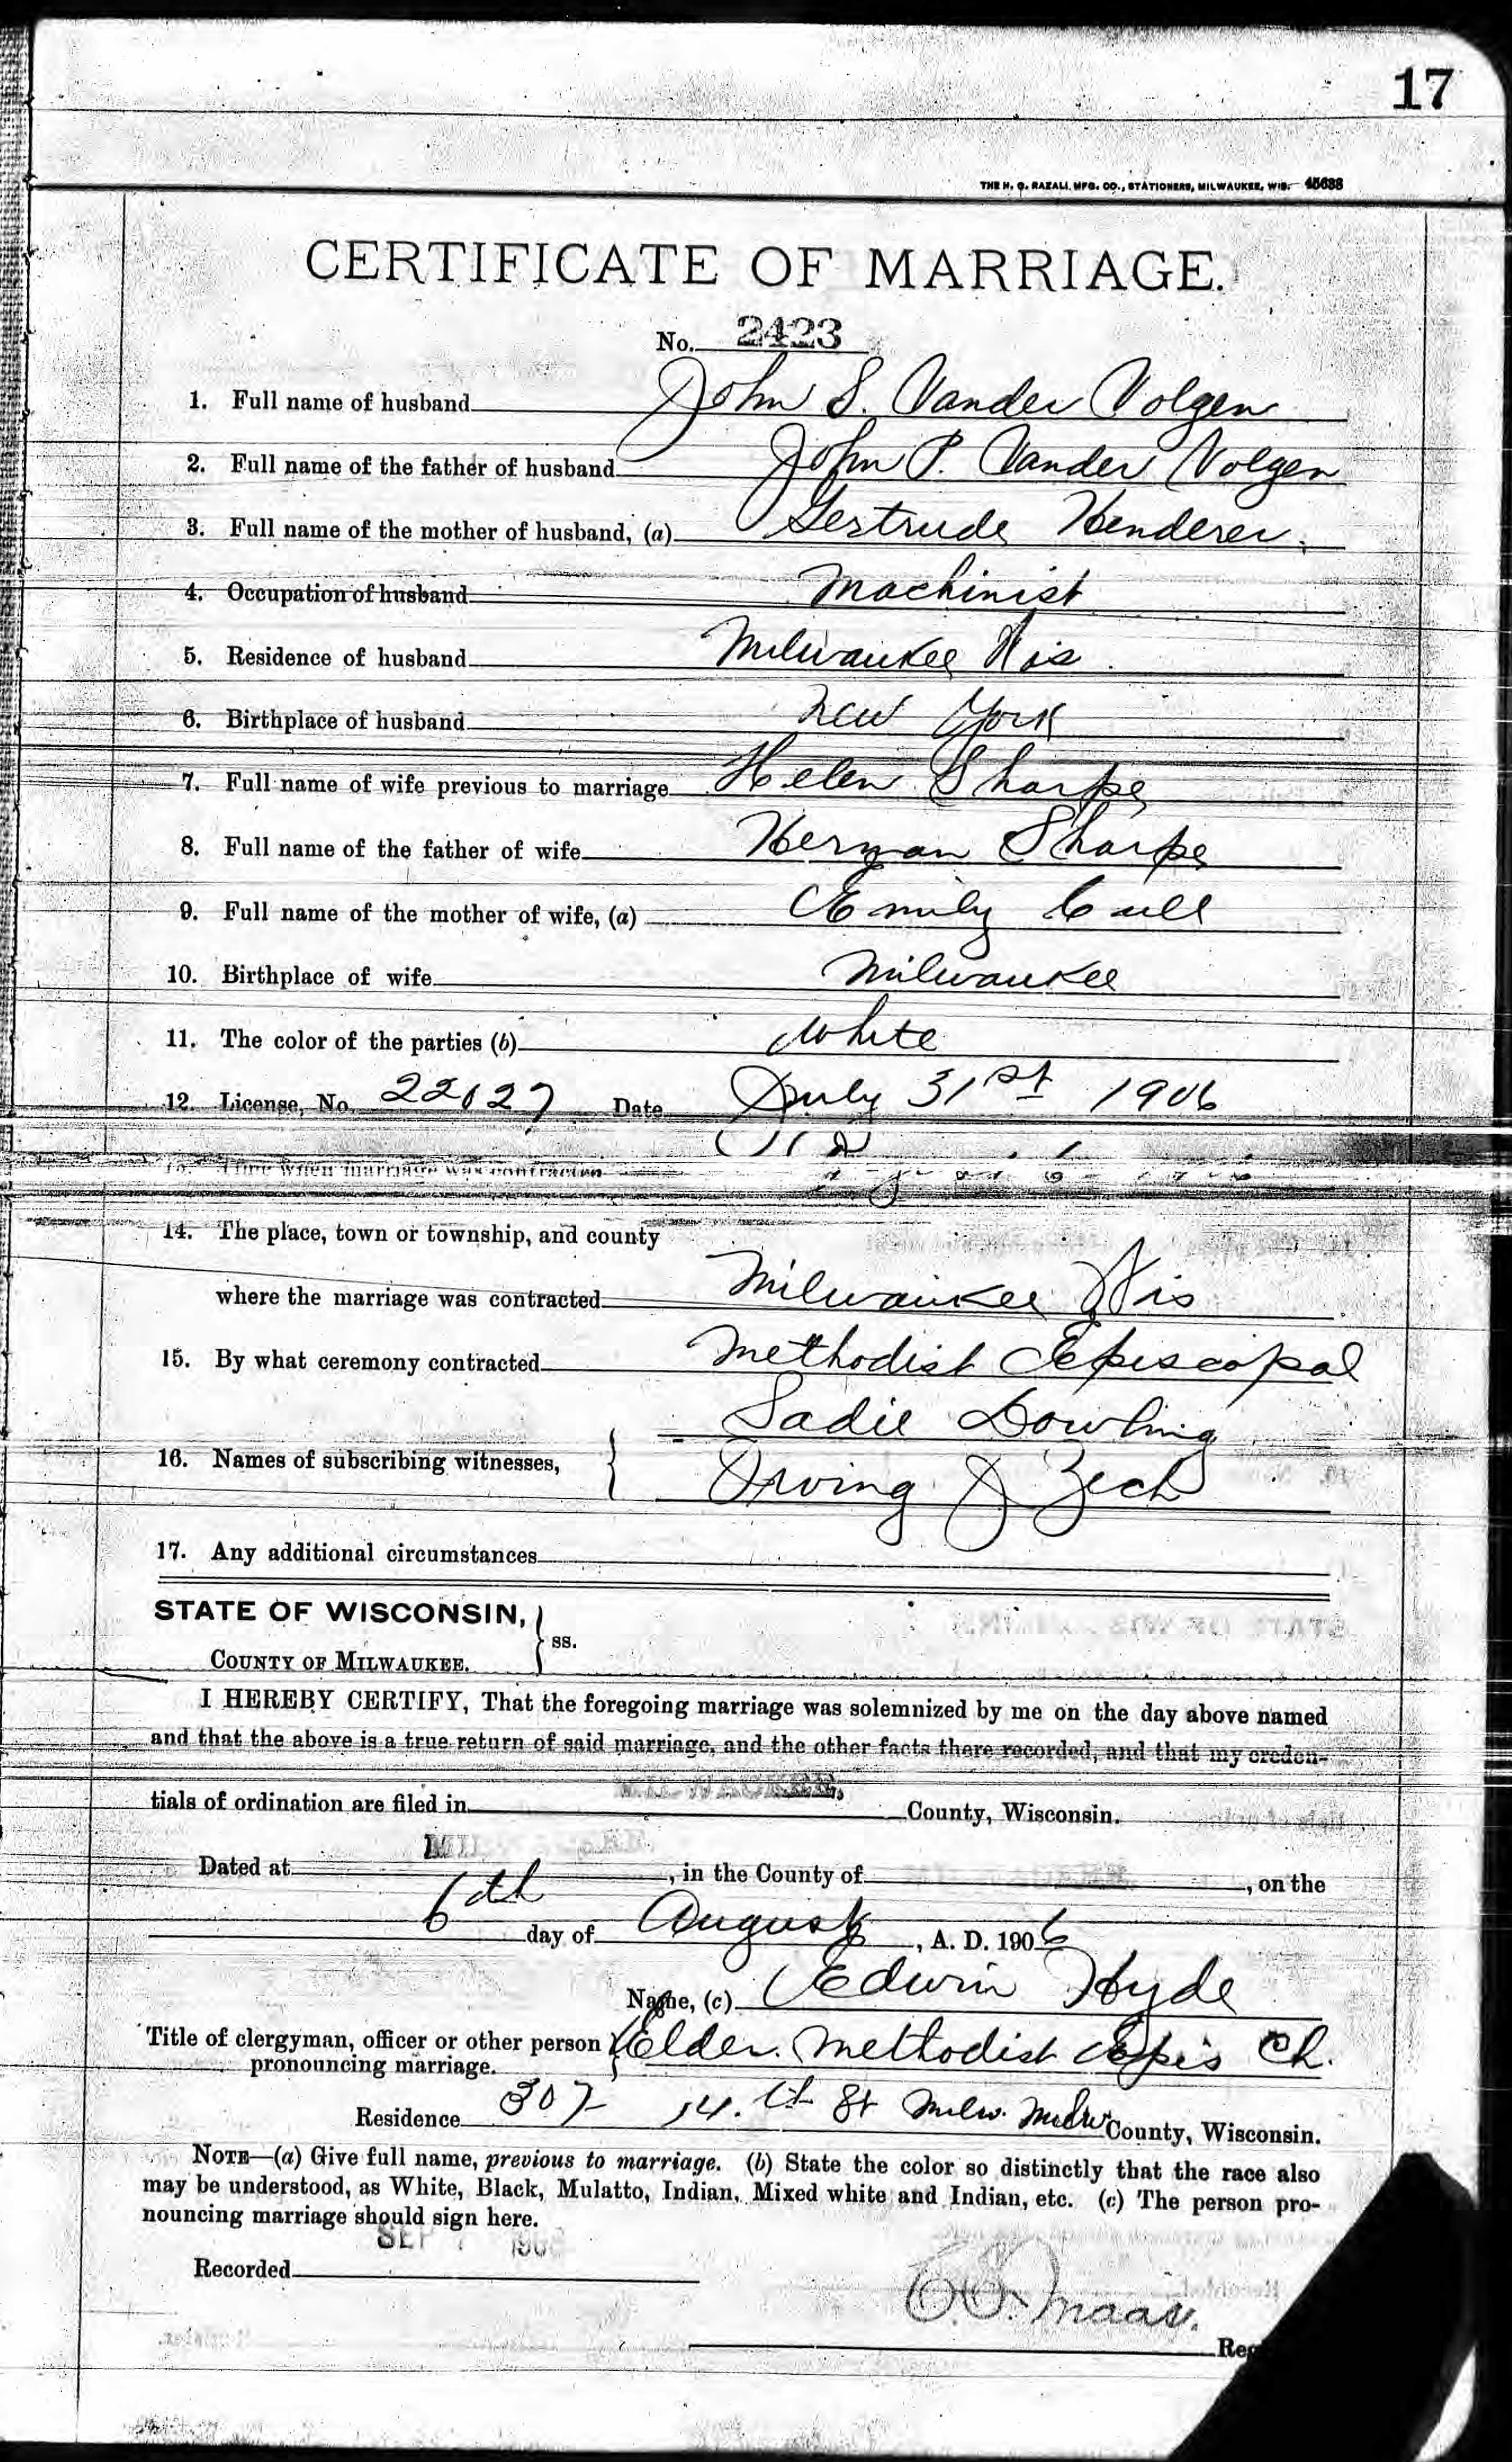 17
THE H. G. RAZALL MFG. CO., STATIONERS, MILWAUKEE, WIS. 45638
CERTIFICATE OF MARRIAGE.
No. 2423
1. Full name of husband John S. Vander Volgen
2. Full name of the father of husband John P. Vander Volgen
3. Full name of the mother of husband, (a) Gertrude Henderer
4. Occupation of husband Machinist
5. Residence of husband Milwaukee Wis.
6. Birthplace of husband New York
7. Full name of wife previous to marriage Helen Sharpe
8. Full name of the father of wife Herman Sharpe
9. Full name of the mother of wife, (a) Emily Cull
10. Birthplace of wife Milwaukee
11. The color of the parties (b) White
12. License, No. 22027 Date July 31st 1906
Time when marriage was contracted
14. The place, town or township, and county
where the marriage was contracted Milwaukee Wis
15. By what ceremony contracted Methodist Episcopal
Sadie Dowling
16. Names of subscribing witnesses,
Irving J Zech
17. Any additional circumstances
STATE OF WISCONSIN,
ss.
COUNTY OF MILWAUKEE.
I HEREBY CERTIFY, That the foregoing marriage was solemnized by me on the day above named
and that the above is a true return of said marriage, and the other facts there recorded, and that my creden-
tials of ordination are filed in MILWAUKEE, County, Wisconsin.
Dated at , in the County of , on the
6th day of August, A. D. 1906
Name, (c) Edwin Hyde
Title of clergyman, officer or other person Elder Methodist Epis Ch.
pronouncing marriage.
Residence 307 14.th St Milw. Milw County, Wisconsin.
NOTE—(a) Give full name, previous to marriage. (b) State the color so distinctly that the race also
may be understood, as White, Black, Mulatto, Indian, Mixed white and Indian, etc. (c) The person pro-
nouncing marriage should sign here.
Recorded SEP 7 1906
Maas.